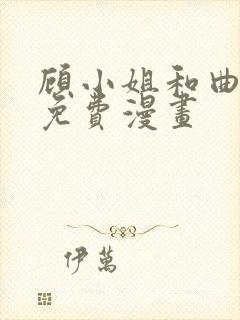 顾小姐和曲
免費漫畫
伊萬